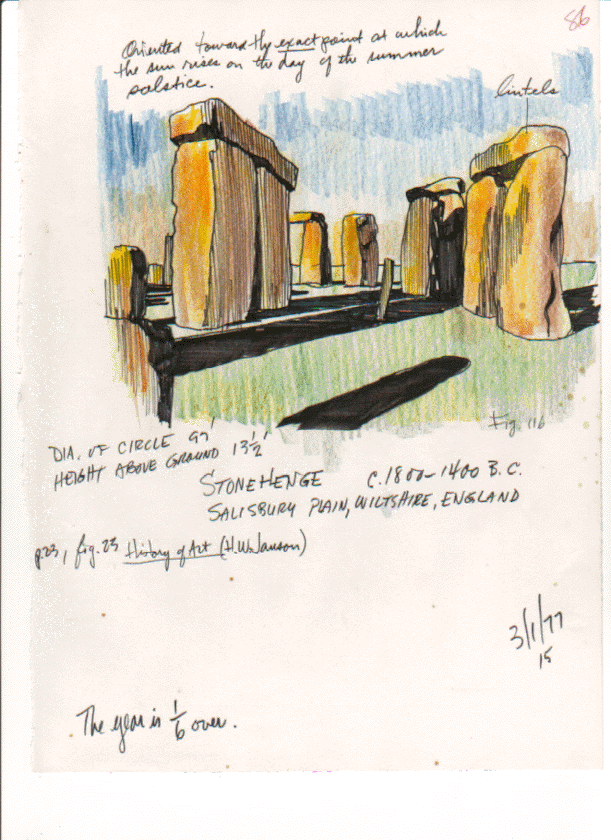 86
Oriented toward the exact point at which
the sun rises on the day of the summer
solstice.
lintels
Fig. 116
DIA. OF CIRCLE 97'
HEIGHT ABOVE GROUND 13½'
STONEHENGE C. 1800-1400 B.C.
SALISBURY PLAIN, WILTSHIRE, ENGLAND
p.23, fig. 23 History of Art (H.W. Janson)
3/1/77
15
The year is 1/6 over.